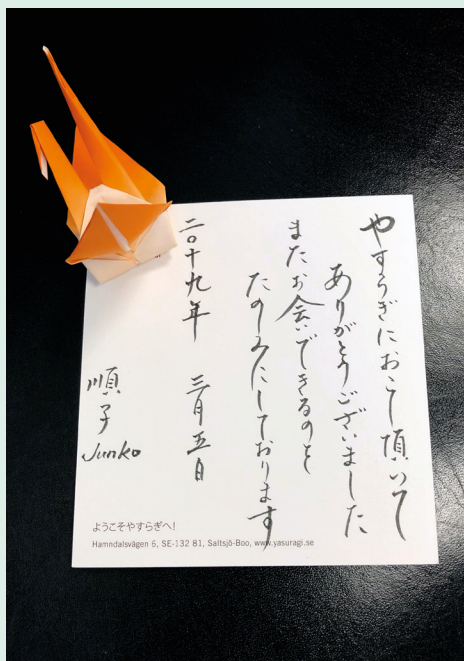 やすらぎにおこし頂いて
ありがとうございました
またお会いできるのを
たのしみにしております
二〇十九年 三月五日
順子
Junko
ようこそやすらぎへ!
Hamndalsvägen 6, SE-132 81, Saltsjö-Boo, www.yasuragi.se